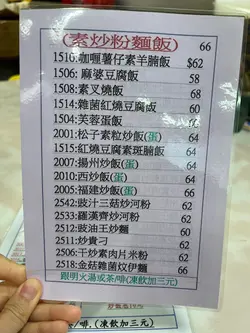 (素炒粉麵飯) 66
1516:咖喱薯仔素羊腩飯 $62
1506: 麻婆豆腐飯 58
1508:素叉燒飯 68
1514:雜菌紅燒豆腐飯 60
1504:芙蓉蛋飯 64
2001:松子素粒炒飯(蛋) 64
1515:紅燒豆腐素斑腩飯 64
2007:揚州炒飯(蛋) 64
2010:西炒飯(蛋) 64
2005:福建炒飯(蛋) 66
2542:豉汁三菇炒河粉 66
2533:羅漢齊炒河粉 66
2512:豉油王炒麵 60
2511:炒貴刁 66
2506:干炒素肉片米粉 66
2518:金菇雜菌炆伊麵 66
跟明火湯或茶/啡(凍飲加三元)
/啡.(凍飲加三元)